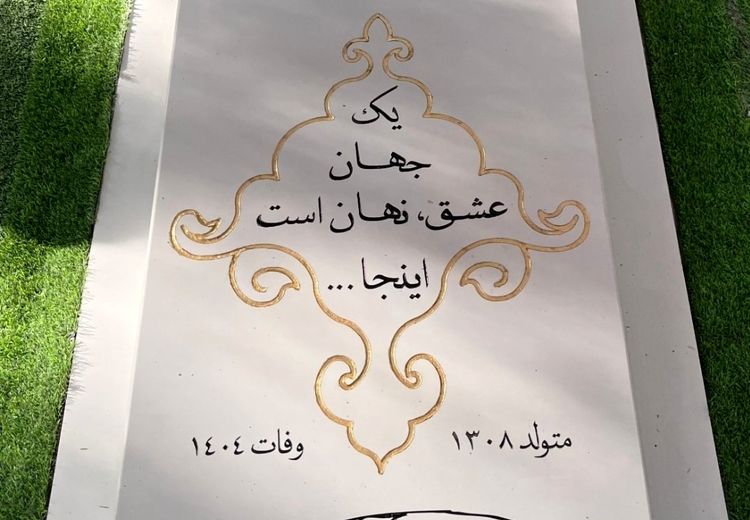 یک
جهان
عشق، نهان است
اینجا...
متولد ۱۳۰۸
وفات ۱۴۰۴